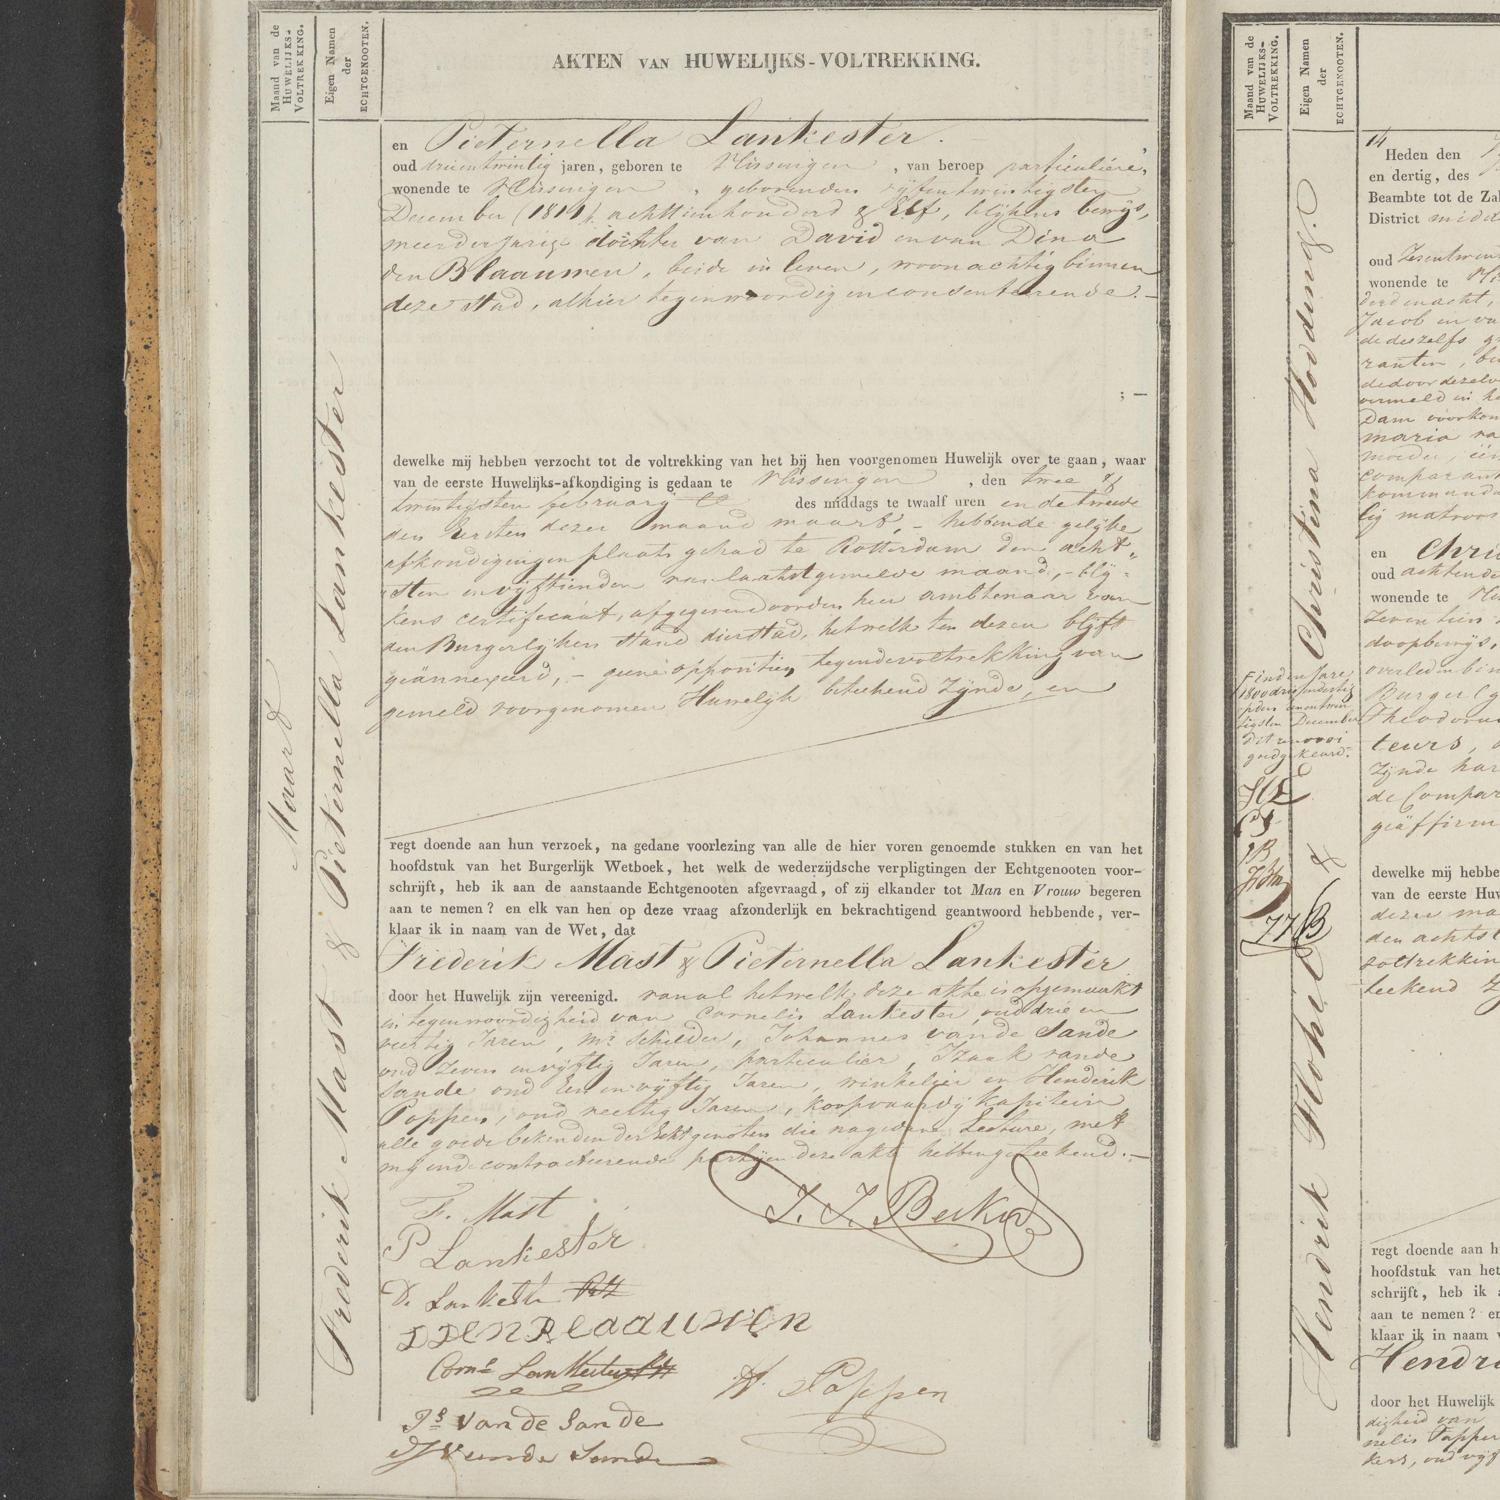 Maand van de
HUWELIJKS-
VOLTREKKING.
Eigen Namen
der
ECHTGENOOTEN.
AKTEN VAN HUWELIJKS-VOLTREKKING.
Maart
Frederik Mast & Pieternella Lankester
en Pieternella Lankester.
oud drieentwintig jaren, geboren te Vlissingen, van beroep particuliere,
wonende te Vlissingen, geboren den vijfentwintigsten
December (1811), achttienhonderd & Elf, blijkens bewijs,
meerderjarige dochter van David en van Dina
den Blaauwen, beide in leven, woonachtig binnen
deze stad, alhier tegenwoordig en consenteerende.—
; —
dewelke mij hebben verzocht tot de voltrekking van het bij hen voorgenomen Huwelijk over te gaan, waar
van de eerste Huwelijks-afkondiging is gedaan te Vlissingen, den twee &
twintigsten februarij des middags te twaalf uren en de tweede
den Eersten dezer maand maart, - hebbende gelijke
afkondigingen plaats gehad te Rotterdam den acht-
sten en vijftienden van laatstgemelde maand, - blij-
kens certificaat, afgegeven door den heer ambtenaar van
den Burgerlijken Stand dier stad, hetwelk ten dezen blijft
geännexeerd, - geene oppositien tegen de voltrekking van
gemeld voorgenomen Huwelijk beteekend zijnde, en
regt doende aan hun verzoek, na gedane voorlezing van alle de hier voren genoemde stukken en van het
hoofdstuk van het Burgerlijk Wetboek, het welk de wederzijdsche verpligtingen der Echtgenooten voor-
schrijft, heb ik aan de aanstaande Echtgenooten afgevraagd, of zij elkander tot Man en Vrouw begeren
aan te nemen? en elk van hen op deze vraag afzonderlijk en bekrachtigend geantwoord hebbende, ver-
klaar ik in naam van de Wet, dat
Frederik Mast & Pieternella Lankester
door het Huwelijk zijn vereenigd. van al hetwelk deze akte is opgemaakt
in tegenwoordigheid van Cornelis Lankester, oud drie en
veertig Jaren, mr Schilder, Johannes van de Sande
oud Zeven en vijftig Jaren, particulier, Izaak van de
Sande oud Een en vijftig Jaren, winkelier en Henderik
Poppen, oud veertig Jaren, koopvaardij kapitein
alle goede bekenden der Echtgenoten die na gedane Lecture, met
mij en de contracteerende partijen deze akte hebben geteekend.—
F. Mast
J. J. Becker
P Lankester
D. Lankester
D DEN BLAAUWEN
Corns Lankester
H. Poppen
Js van de Sande
Maand van de
HUWELIJKS-
VOLTREKKING.
Eigen Namen
der
ECHTGENOOTEN.
Hendrik & Christina
14
Heden den
en dertig, des
Beambte tot de
District midd
oud Zesentwin
wonende te
Jacob en va
de deszelfs
ranten,
vermeld in
Dam voorkom
maria va
moeder,
comparant
kommanda
lig matroos
en Chri
oud achtende
wonende te
Zeventien
doopbewijs,
overleden bin
Burgerl
Theodorus
teurs,
Zijnde har
de Compar
geäffirm
dewelke mij hebbe
van de eerste
dezer ma
den achtst
voltrekkin
teekend
regt doende aan
hoofdstuk van het
schrijft, heb ik
aan te nemen?
klaar ik in naam
Hendri
door het Huwelijk
digheid van
nelis Poppe
kers, oud vijf